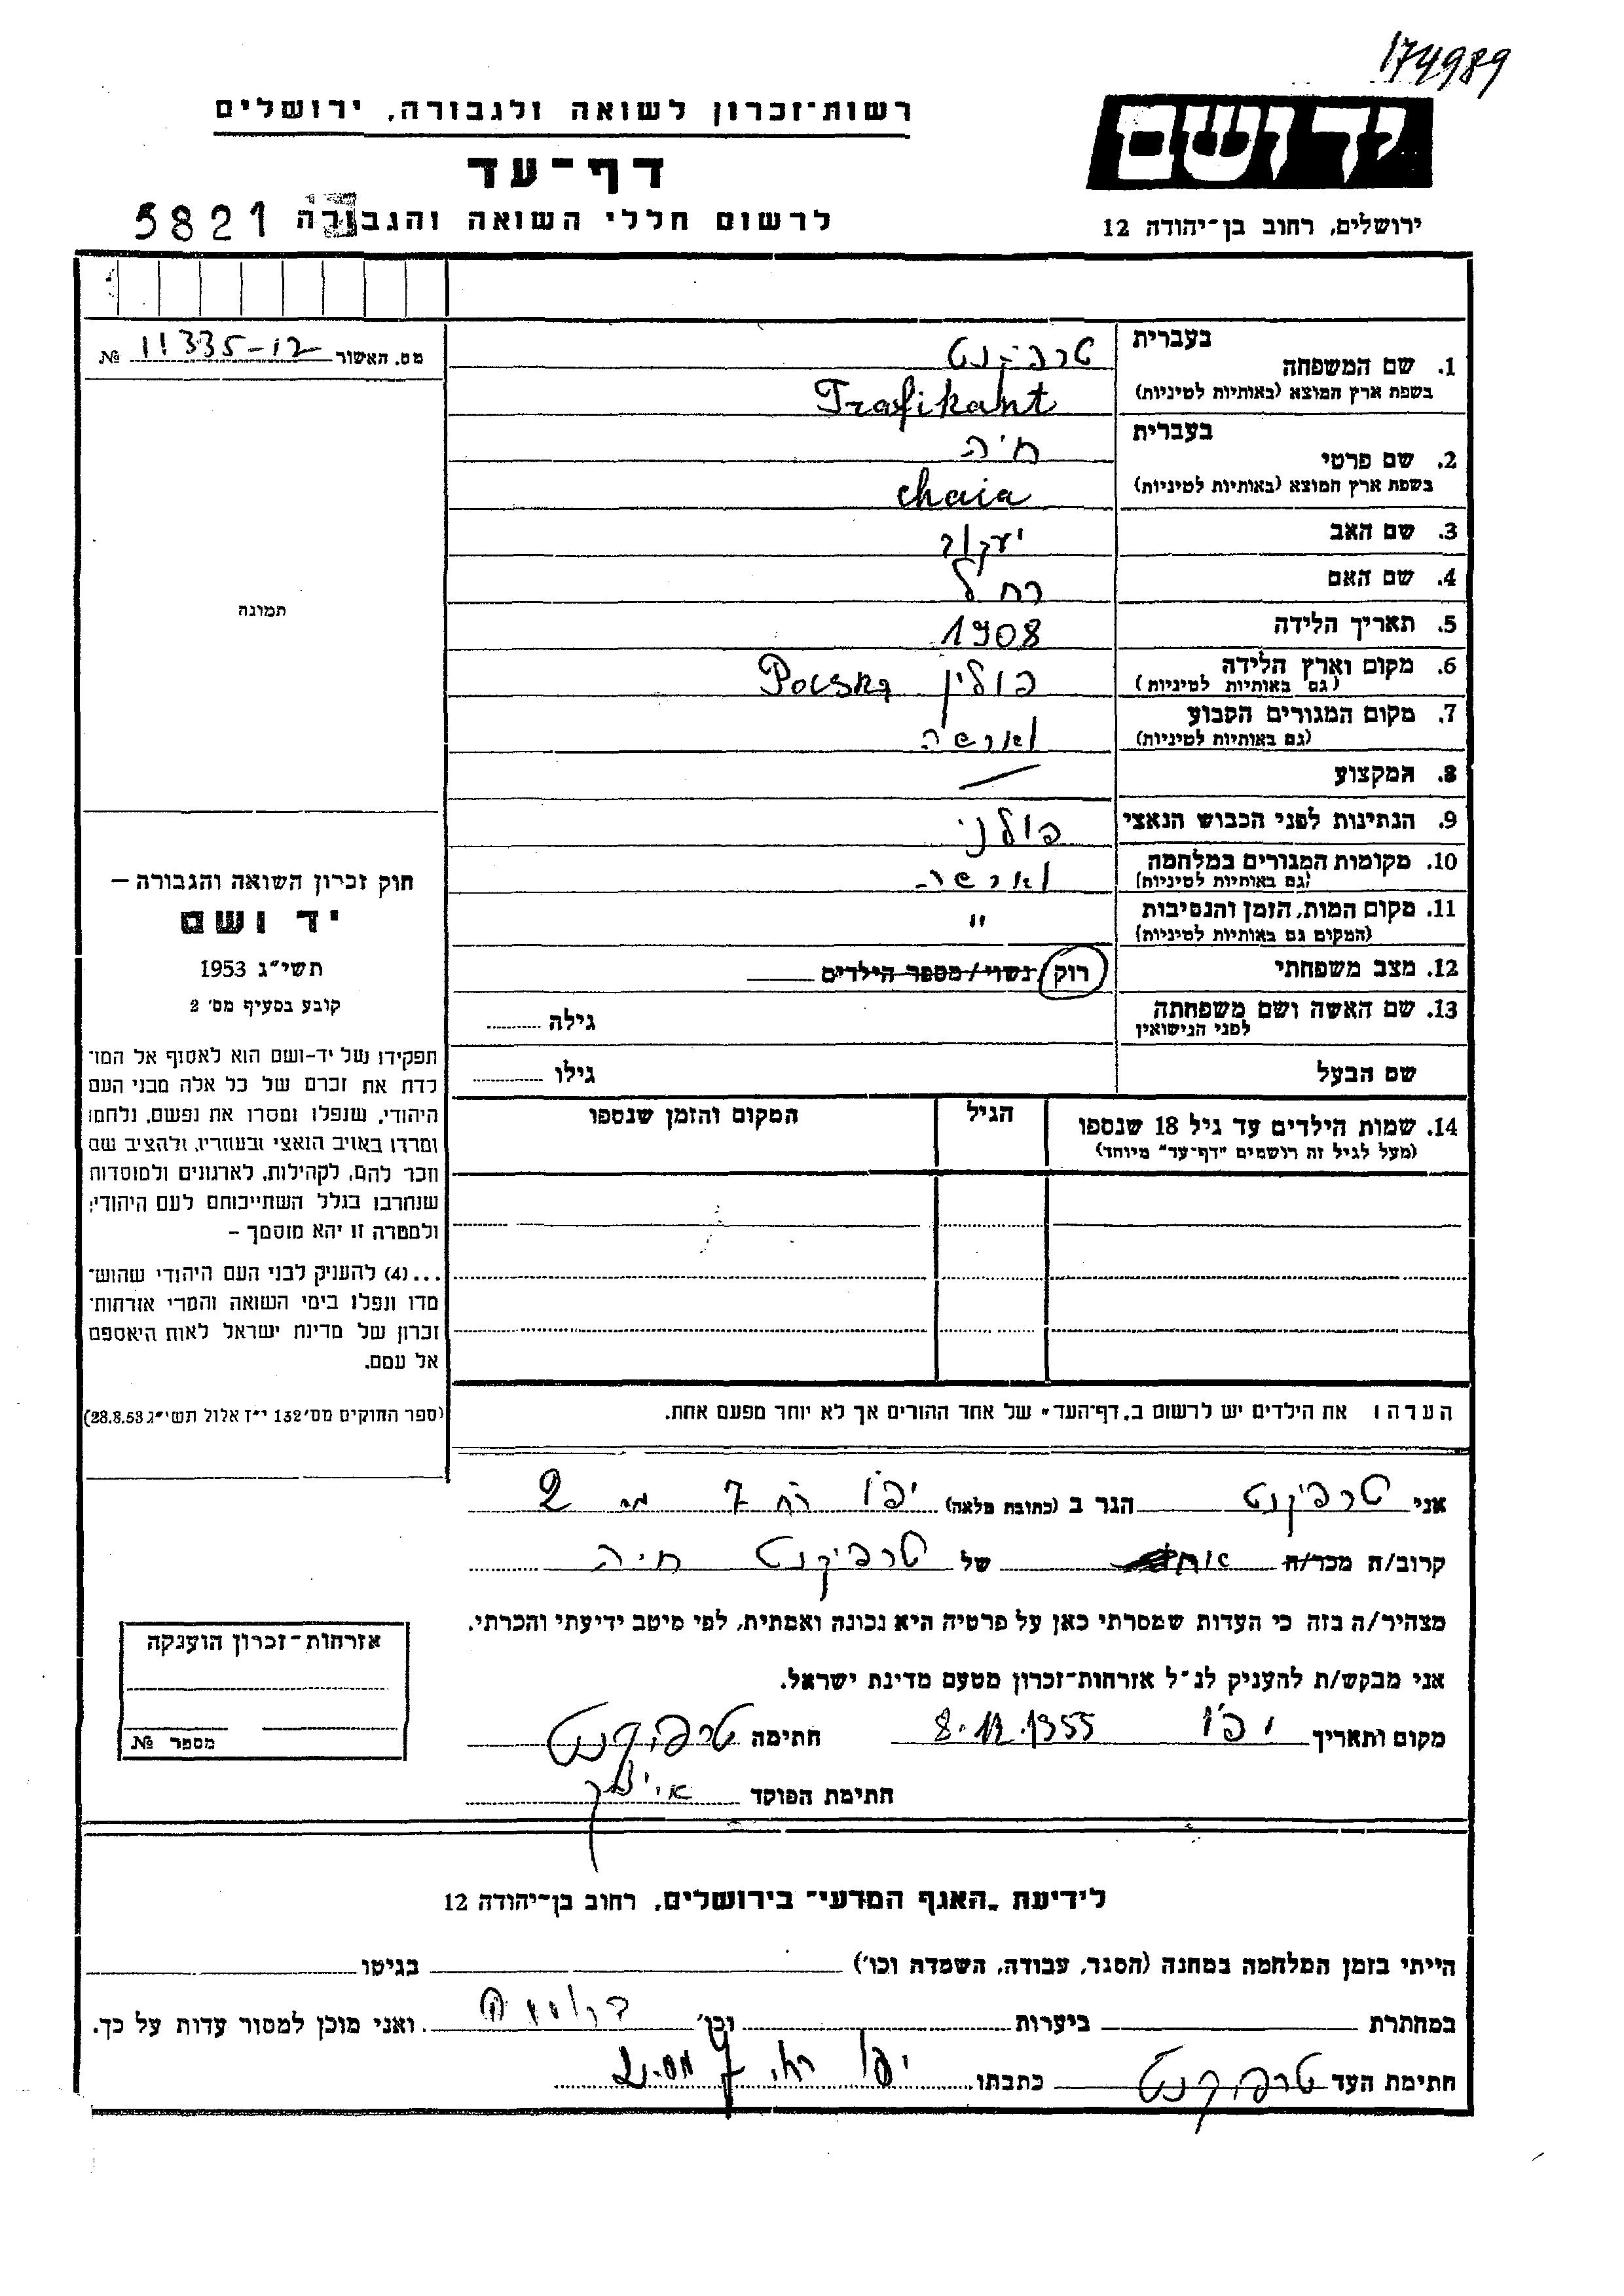 174989
רשות־זכרון לשואה ולגבורה, ירושלים
יד ושם
דף־עד
לרשום חללי השואה והגבורה 5821
ירושלים, רחוב בן־יהודה 12
מס. האשור 11335-12 №
בעברית
1. שם המשפחה טרפיקנט
בשפת ארץ המוצא (באותיות לטיניות) Trafikant
בעברית
2. שם פרטי חיה
בשפת ארץ המוצא (באותיות לטיניות) chaia
3. שם האב יעקוב
4. שם האם רחל
5. תאריך הלידה 1908
6. מקום וארץ הלידה פולין Polska
(גם באותיות לטיניות)
7. מקום המגורים הקבוע ווארשה
(גם באותיות לטיניות)
8. המקצוע —
9. הנתינות לפני הכבוש הנאצי פולני
10. מקומות המגורים במלחמה ווארשה
(גם באותיות לטיניות)
11. מקום המות, הזמן והנסיבות "
(המקום גם באותיות לטיניות)
12. מצב משפחתי רוק/נשוי/מספר הילדים
13. שם האשה ושם משפחתה גילה
לפני הנישואין
שם הבעל גילו
14. שמות הילדים עד גיל 18 שנספו הגיל המקום והזמן שנספו
(מעל לגיל זה רושמים "דף־עד" מיוחד)
הערה: את הילדים יש לרשום ב„דף־העד" של אחד ההורים אך לא יותר מפעם אחת.
תמונה
חוק זכרון השואה והגבורה –
יד ושם
תשי"ג 1953
קובע בסעיף מס' 2
תפקידו של יד-ושם הוא לאסוף אל המו־
לדת את זכרם של כל אלה מבני העם
היהודי, שנפלו ומסרו את נפשם, נלחמו
ומרדו באויב הנאצי ובעוזריו, ולהציב שם
וזכר להם, לקהילות, לארגונים ולמוסדות
שנחרבו בגלל השתייכותם לעם היהודי;
ולמטרה זו יהא מוסמך –
...(4) להעניק לבני העם היהודי שהוש־
מדו ונפלו בימי השואה והמרי אזרחות־
זכרון של מדינת ישראל לאות היאספם
אל עמם.
(ספר החוקים מס' 132 י"ז אלול תשי"ג 28.8.53)
אני טרפיקנט הגר ב (כתובת מלאה) יפו רח 7 מס 2
קרוב/ה מכר/ה של טרפיקנט חיה
מצהיר/ה בזה כי העדות שמסרתי כאן על פרטיה היא נכונה ואמתית, לפי מיטב ידיעתי והכרתי.
אני מבקש/ת להעניק לנ"ל אזרחות־זכרון מטעם מדינת ישראל.
מקום ותאריך יפו 8.12.1955 חתימה טרפיקנט
חתימת הפוקד
אזרחות־זכרון הוענקה
מספר №
לידיעת „האגף המדעי" בירושלים, רחוב בן־יהודה 12
הייתי בזמן המלחמה במחנה (הסגר, עבודה, השמדה וכו') בגיטו
במחתרת ביערות וכו' ואני מוכן למסור עדות על כך.
חתימת העד טרפיקנט כתבתו יפו רח. 7 מס. 2